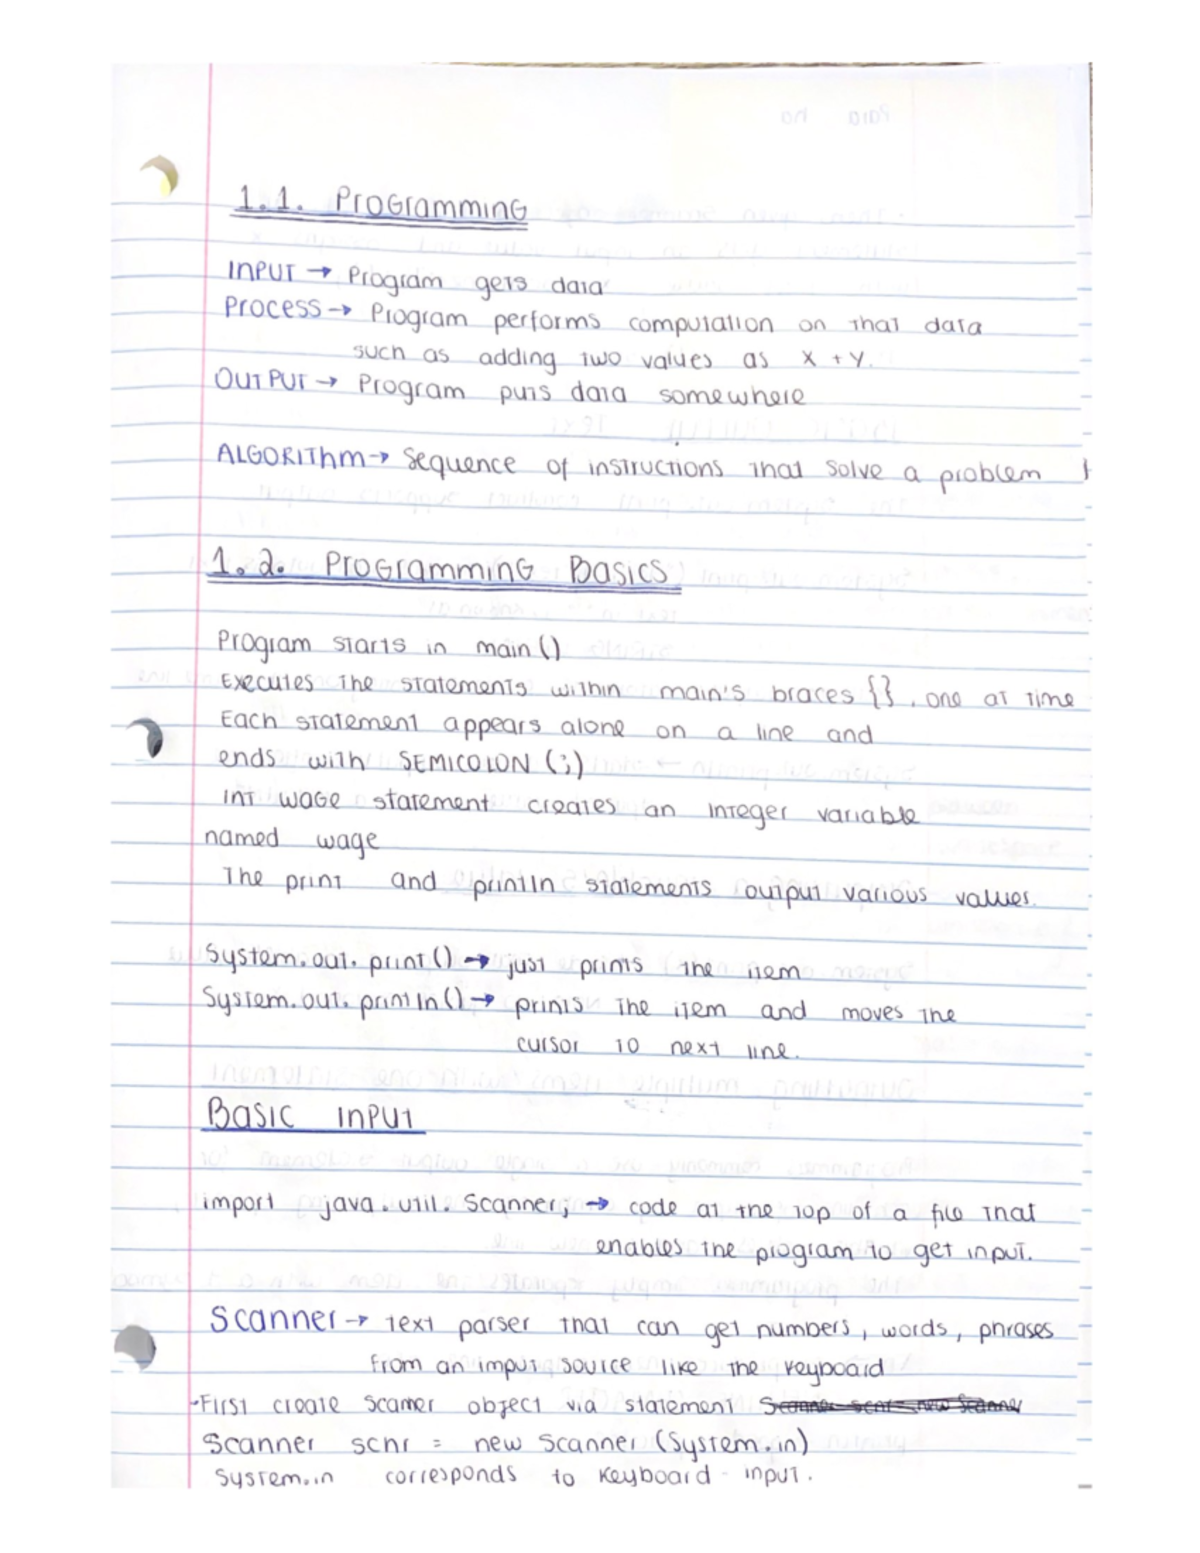 1.1. Programming
INPUT → Program gets data
Process → Program performs computation on that data
such as adding two values as X + Y.
OUTPUT → Program puts data somewhere
ALGORIThm → Sequence of instructions that solve a problem
1.2. Programming Basics
Program starts in main ()
Executes the statements within main's braces {} , one at time
Each statement appears alone on a line and
ends with SEMICOLON (;)
int wage statement creates an integer variable
named wage
The print and println statements output various values.
System.out.print() → just prints the item
System.out.println() → prints the item and moves the
cursor to next line.
Basic Input
import java.util.Scanner; → code at the top of a file that
enables the program to get input.
Scanner → text parser that can get numbers, words, phrases
from an imput source like the keyboard
-First create scanner object via statement Scanner scnr = new Scanner
Scanner scnr = new Scanner (System.in)
System.in corresponds to keyboard input.